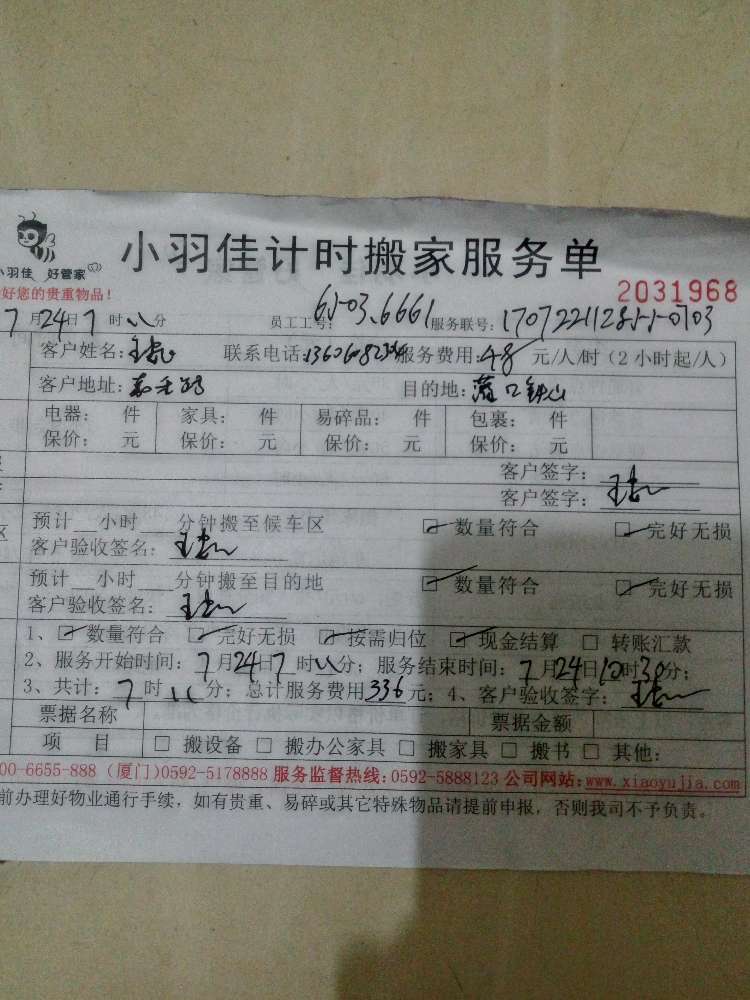 小羽佳计时搬家服务单
小羽佳 好管家
好您的贵重物品!
2031968
7月24日7时 分 员工工号: 65-03、6661 服务联号:
客户姓名: 联系电话: 服务费用: 48 元/人/时(2小时起/人)
客户地址: 目的地:
电器: 件 家具: 件 易碎品: 件 包裹: 件
保价: 元 保价: 元 保价: 元 保价: 元
客户签字:
客户签字:
预计 小时 分钟搬至候车区 数量符合 完好无损
客户验收签名:
预计 小时 分钟搬至目的地 数量符合 完好无损
客户验收签名:
1、 数量符合 完好无损 按需归位 现金结算 转账汇款
2、服务开始时间: 7月24日7时 分; 服务结束时间: 7月24日 时30分;
3、共计: 7时 分; 总计服务费用336元; 4、客户验收签字:
票据名称 票据金额
项 目 搬设备 搬办公家具 搬家具 搬书 其他:
00-6655-888 (厦门)0592-5178888 服务监督热线:0592-5888123 公司网站:www.xiaoyujia.com
前办理好物业通行手续,如有贵重、易碎或其它特殊物品请提前申报,否则我司不予负责。